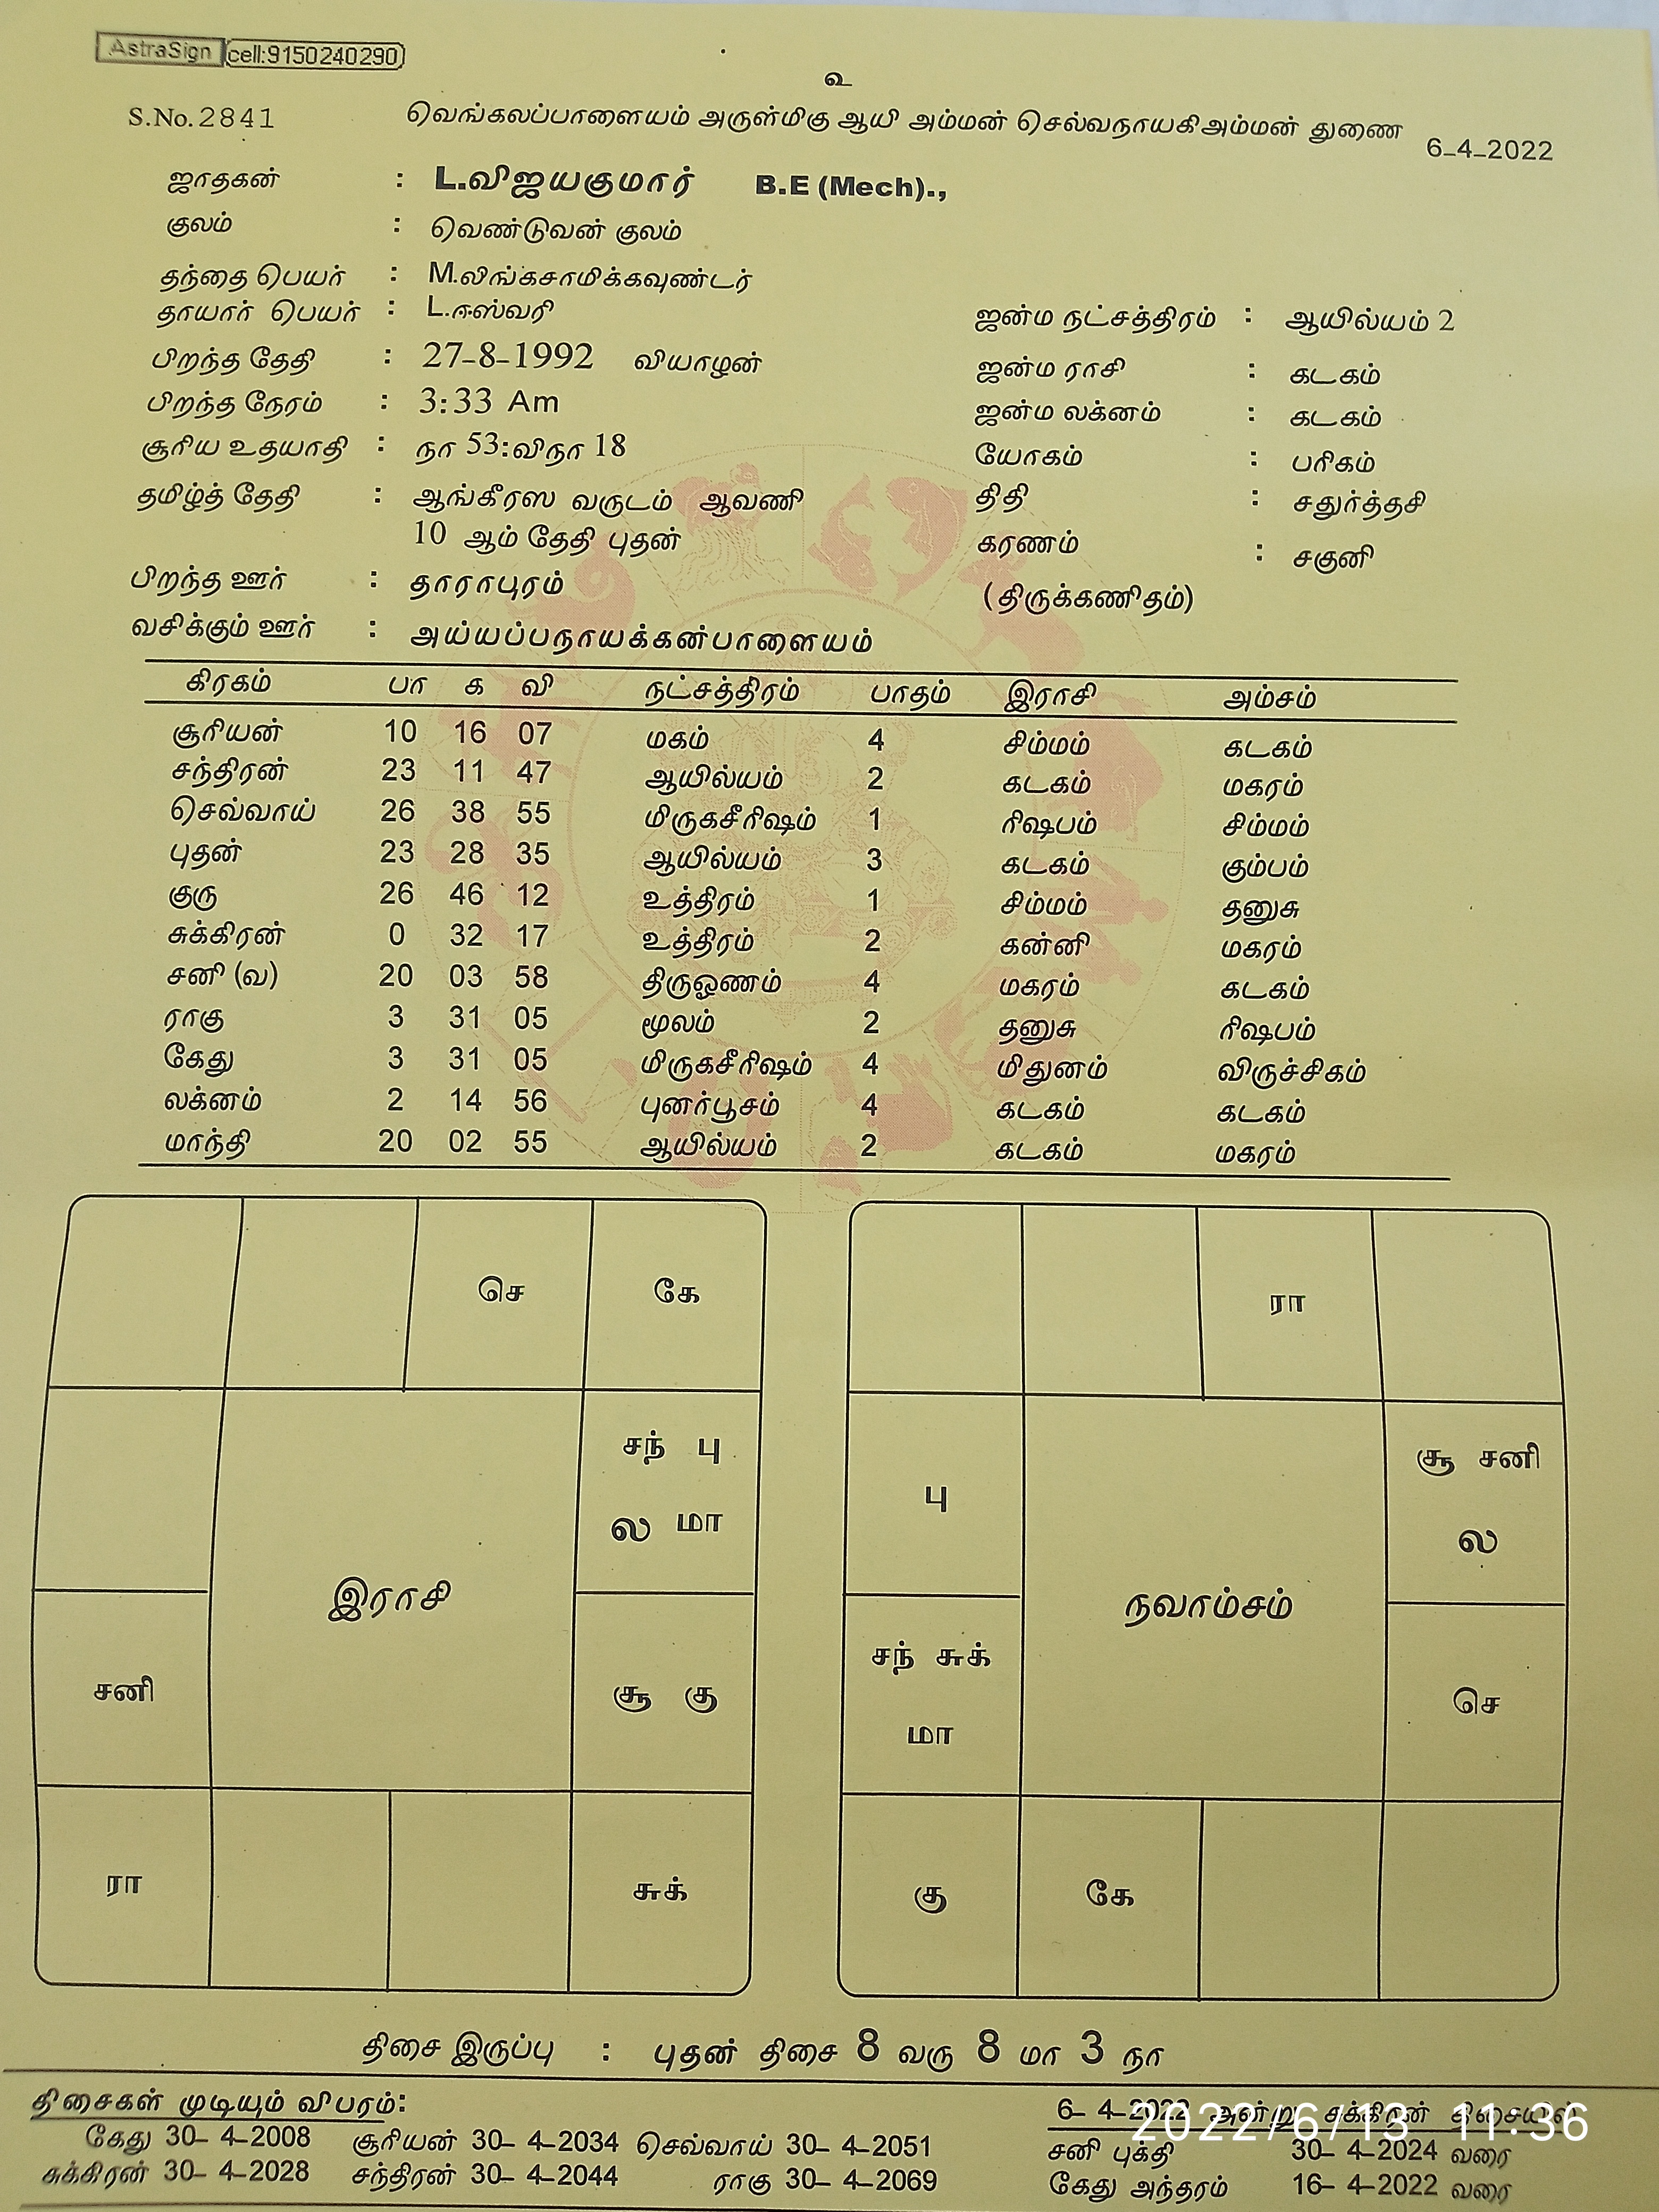 AstraSign cell:9150240290
உ
S.No. 2841 வெங்கலப்பாளையம் அருள்மிகு ஆயி அம்மன் செல்வநாயகிஅம்மன் துணை 6-4-2022
ஜாதகன் : L.விஜயகுமார் B.E (Mech).,
குலம் : வெண்டுவன் குலம்
தந்தை பெயர் : M.லிங்கசாமிக்கவுண்டர்
தாயார் பெயர் : L.ஈஸ்வரி ஜன்ம நட்சத்திரம் : ஆயில்யம் 2
பிறந்த தேதி : 27-8-1992 வியாழன் ஜன்ம ராசி : கடகம்
பிறந்த நேரம் : 3:33 Am ஜன்ம லக்னம் : கடகம்
சூரிய உதயாதி : நா 53:விநா 18 யோகம் : பரிகம்
தமிழ்த் தேதி : ஆங்கீரஸ வருடம் ஆவணி திதி : சதுர்த்தசி
10 ஆம் தேதி புதன் கரணம் : சகுனி
பிறந்த ஊர் : தாராபுரம் (திருக்கணிதம்)
வசிக்கும் ஊர் : அய்யப்பநாயக்கன்பாளையம்
கிரகம் பா க வி நட்சத்திரம் பாதம் இராசி அம்சம்
சூரியன் 10 16 07 மகம் 4 சிம்மம் கடகம்
சந்திரன் 23 11 47 ஆயில்யம் 2 கடகம் மகரம்
செவ்வாய் 26 38 55 மிருகசீரிஷம் 1 ரிஷபம் சிம்மம்
புதன் 23 28 35 ஆயில்யம் 3 கடகம் கும்பம்
குரு 26 46 12 உத்திரம் 1 சிம்மம் தனுசு
சுக்கிரன் 0 32 17 உத்திரம் 2 கன்னி மகரம்
சனி (வ) 20 03 58 திருஓணம் 4 மகரம் கடகம்
ராகு 3 31 05 மூலம் 2 தனுசு ரிஷபம்
கேது 3 31 05 மிருகசீரிஷம் 4 மிதுனம் விருச்சிகம்
லக்னம் 2 14 56 புனர்பூசம் 4 கடகம் கடகம்
மாந்தி 20 02 55 ஆயில்யம் 2 கடகம் மகரம்
செ கே
சந் பு
ல மா
இராசி
சனி
சூ கு
ரா சுக்
ரா
பு
சூ சனி
ல
நவாம்சம்
சந் சுக்
மா
செ
கு கே
திசை இருப்பு : புதன் திசை 8 வரு 8 மா 3 நா
திசைகள் முடியும் விபரம்:
கேது 30- 4-2008 சூரியன் 30- 4-2034 செவ்வாய் 30- 4-2051
சுக்கிரன் 30- 4-2028 சந்திரன் 30- 4-2044 ராகு 30- 4-2069
6- 4-2022 அன்று சுக்கிரன் திசையில்
சனி புக்தி 30- 4-2024 வரை
கேது அந்தரம் 16- 4-2022 வரை
2022/6/13 11:36